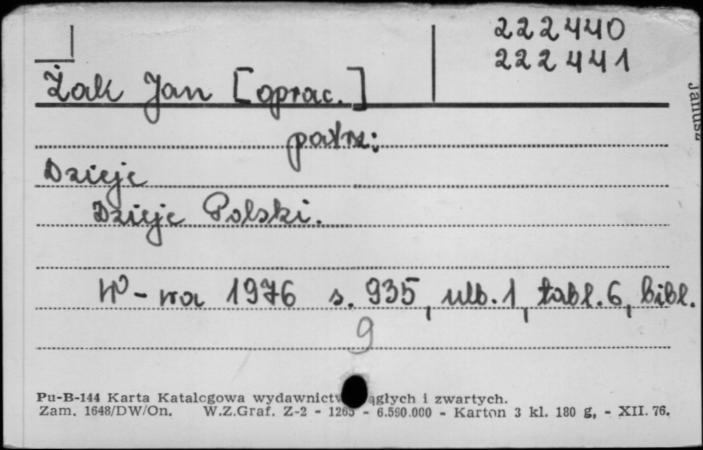 222440
222441
Żak Jan [oprac.]
Janusz
patrz:
Dzieje
Dzieje Polski.
W-wa 1976 s. 935, ulb. 1, tabl. 6, bibl.
9
Pu-B-144 Karta Katalogowa wydawnictw ciągłych i zwartych.
Zam. 1648/DW/On. W.Z.Graf. Z-2 - 1265 - 6.590.000 - Karton 3 kl. 180 g, - XII. 76.